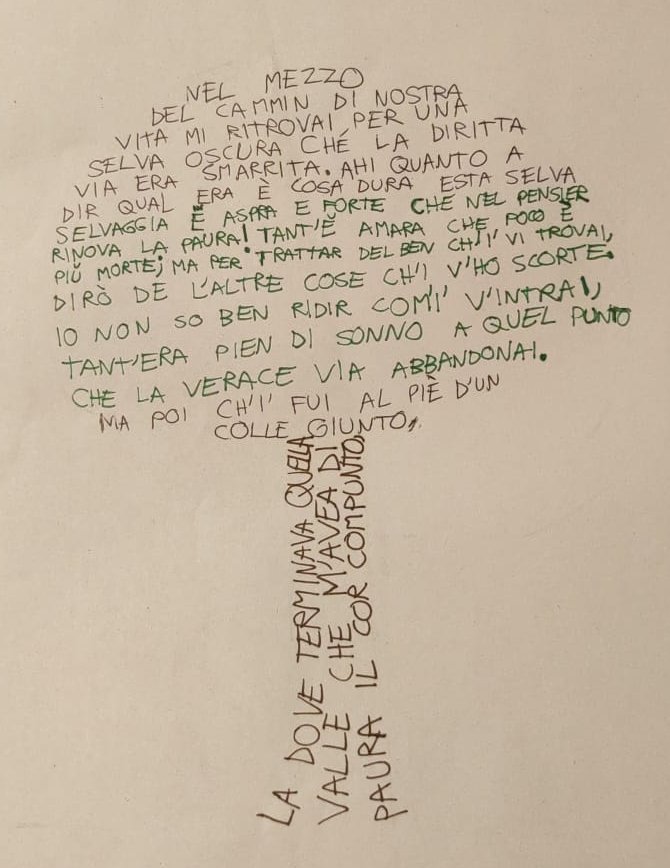 NEL MEZZO
DEL CAMMIN DI NOSTRA
VITA MI RITROVAI PER UNA
SELVA OSCURA CHÉ LA DIRITTA
VIA ERA SMARRITA. AHI QUANTO A
DIR QUAL ERA È COSA DURA ESTA SELVA
SELVAGGIA È ASPRA E FORTE CHE NEL PENSIER
RINOVA LA PAURA! TANT'È AMARA CHE POCO È
PIÙ MORTE; MA PER TRATTAR DEL BEN CH'I' VI TROVAI,
DIRÒ DE L'ALTRE COSE CH'I V'HO SCORTE.
IO NON SO BEN RIDIR COM'I' V'INTRAI,
TANT'ERA PIEN DI SONNO A QUEL PUNTO
CHE LA VERACE VIA ABBANDONAI.
MA POI CH'I' FUI AL PIÈ D'UN
COLLE GIUNTO,
LA DOVE TERMINAVA QUELLA
VALLE CHE M'AVEA DI
PAURA IL COR COMPUNTO,